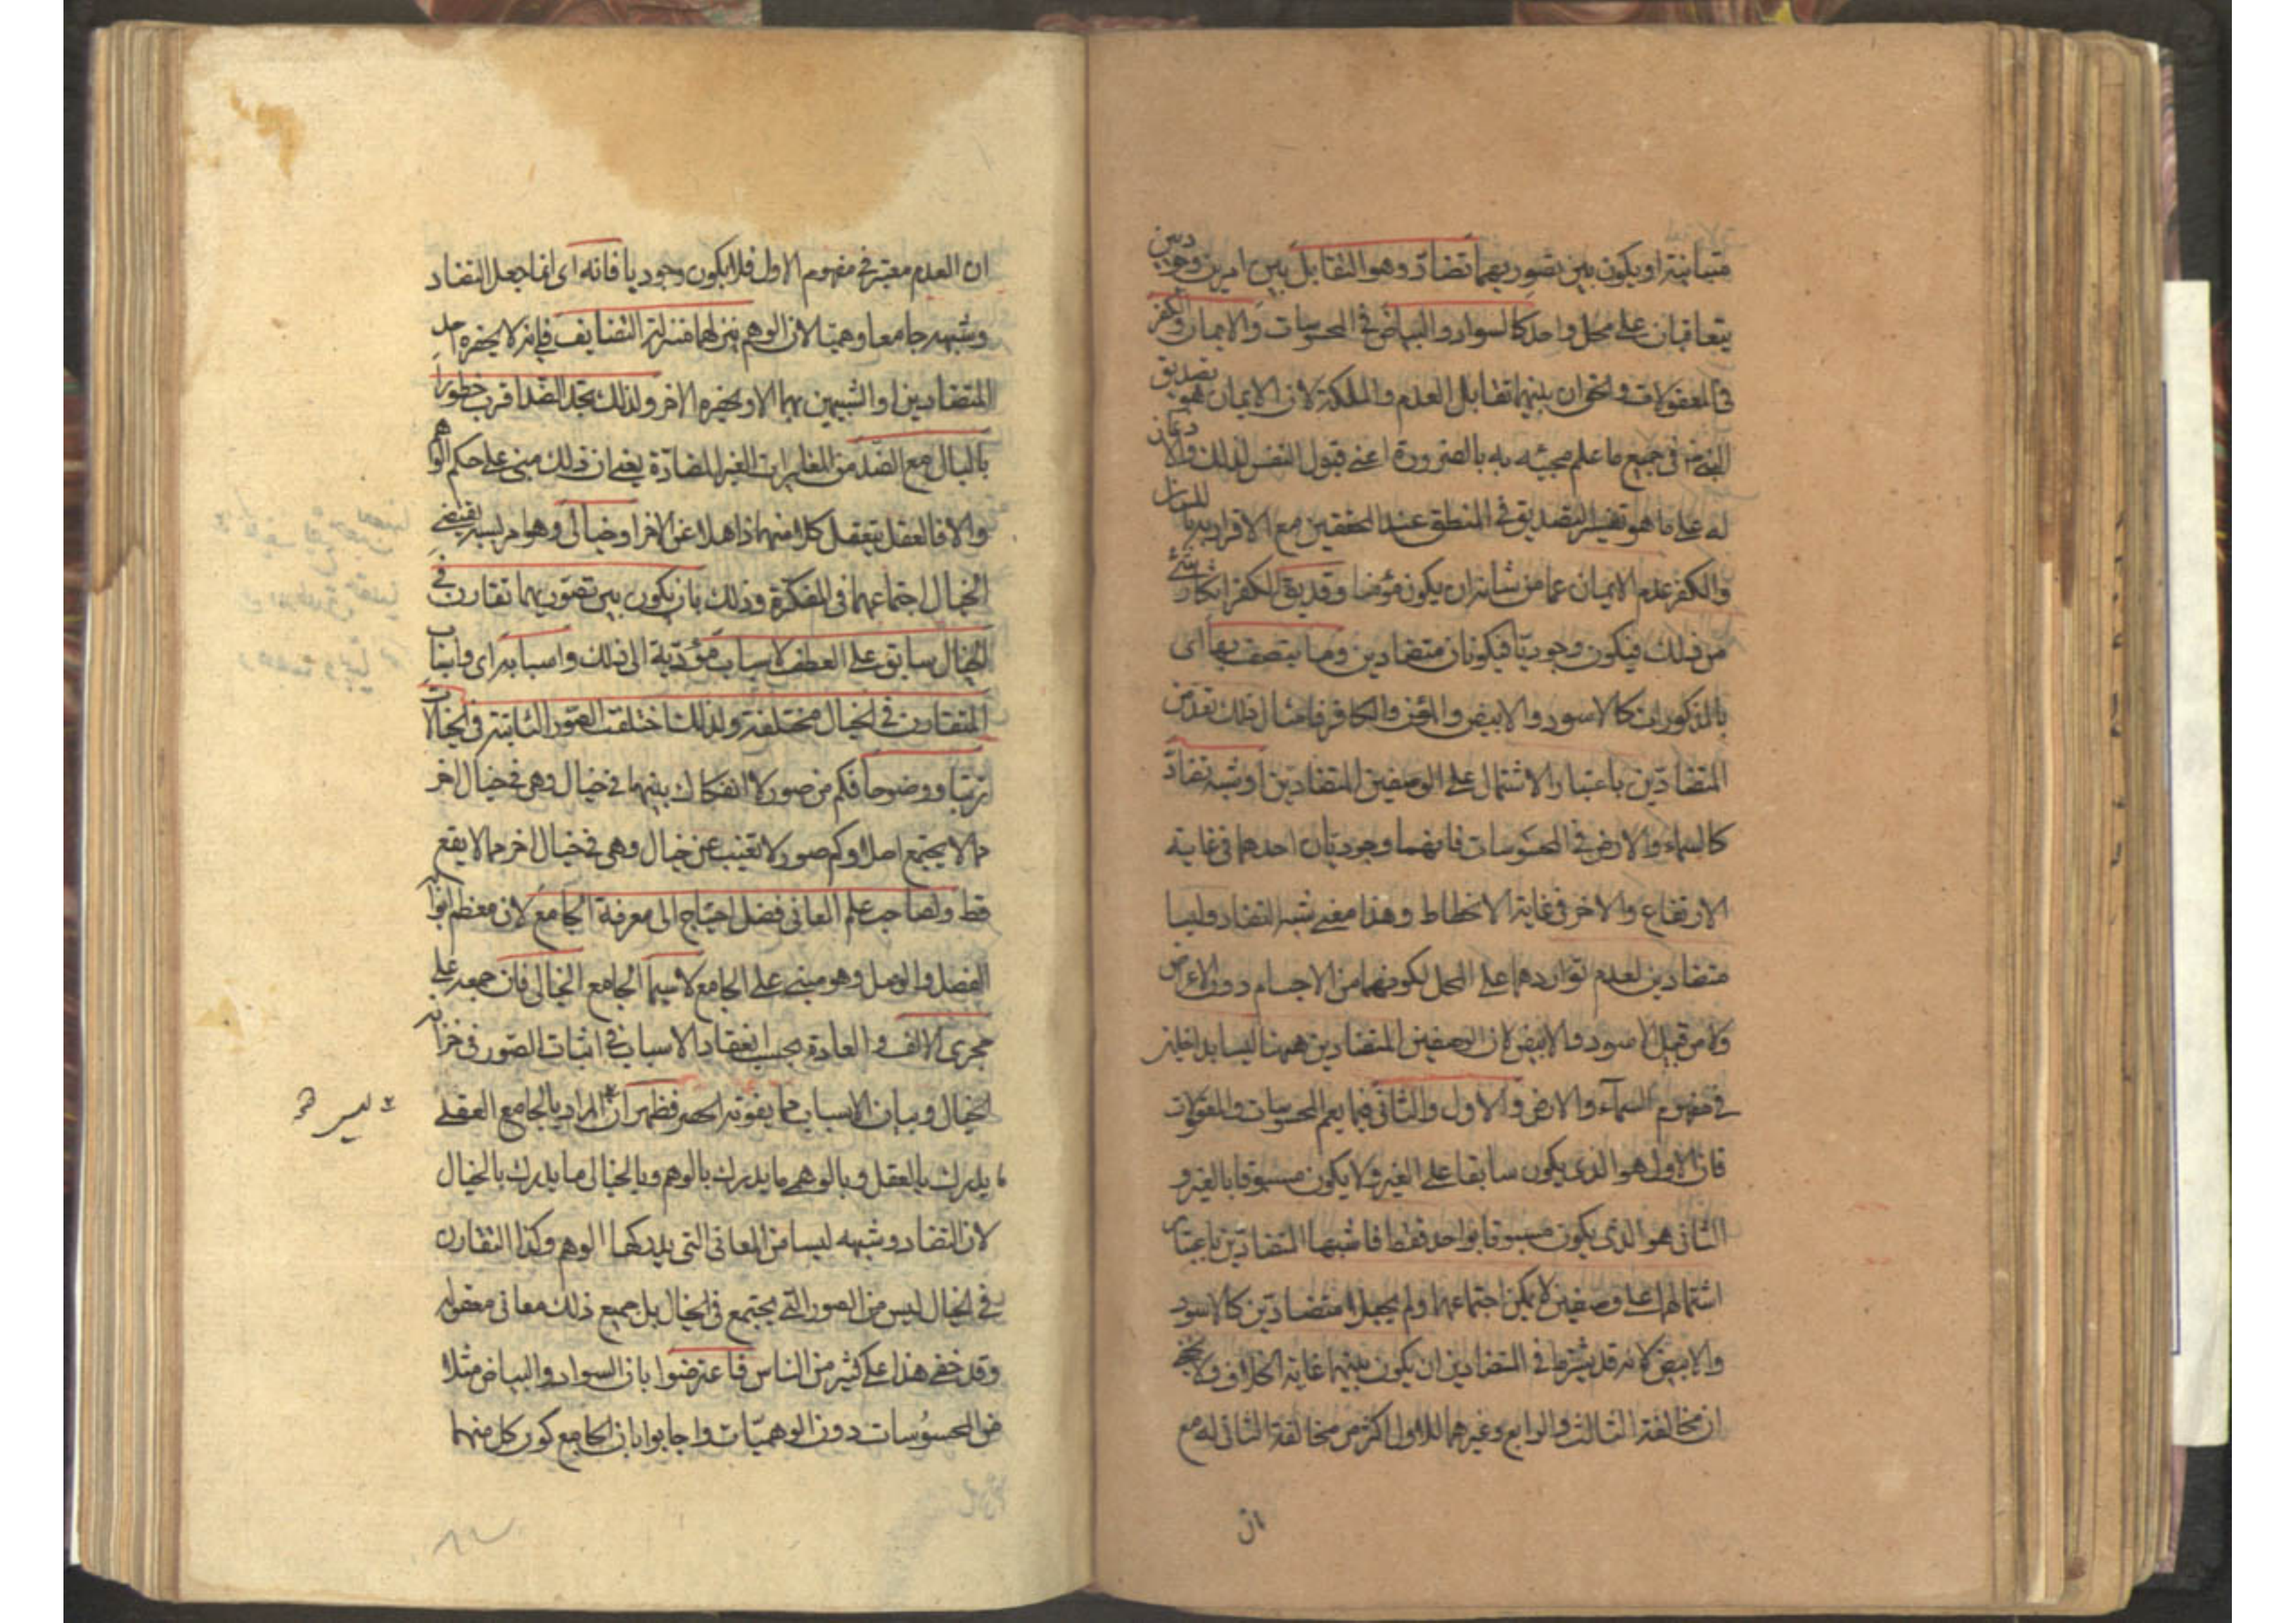 متباينة او يكون بين تصوريهما تضاد وهو التقابل بين امرين وجوديين
يتعاقبان على محل واحد كالسواد والبياض في المحسوسات والايمان والكفر
في المعقولات والحق ان بينهما تقابل العدم والملكة لان الايمان هو تصديق
النبي في جميع ما علم مجيئه به بالضرورة اعني قبول النفس لذلك والاذعان
له على ما هو تفسير التصديق في المنطق عند المحققين مع الاقرار به باللسان
والكفر عدم الايمان عما من شانه ان يكون مؤمنا وقد يق الكفر انكار شئ
من ذلك فيكون وجوديا فيكونان متضادين وما يتصف بها اى
بالمذكورات كالاسود والابيض والمؤمن والكافر فامثال ذلك تعد من
المتضادين باعتبار الاشتمال على الوصفين المتضادين او شبه تضاد
كالسماء والارض في المحسوسات فانهما وجوديان احدهما في غاية
الارتفاع والاخر في غاية الانحطاط وهذا معنى شبه التضاد وليسا
متضادين لعدم تواردهما على المحل لكونهما من الاجسام دون الاعراض
ولا من قبيل الاسود والابيض لان الوصفين المتضادين ههنا ليسا بداخلين
في مفهوم السماء والارض والاول والثانى فيما يعم المحسوسات والمعقولات
فان الاول هو الذى يكون سابقا على الغير ولا يكون مسبوقا بالغير و
الثانى هو الذى يكون مسبوقا بواحد فقط فاشبها المتضادين باعتبار
اشتمالهما على وصفين لا يمكن اجتماعهما ولم يجعلا متضادين كالاسود
والابيض لانه قد يشترط في المتضادين ان يكون بينهما غاية الخلاف ولا يخفى
ان مخالفة الثالث والرابع وغيرهما للاول اكثر من مخالفة الثانى له مع
ان
ان العدم معتبر في مفهوم الاول فلا يكون وجوديا فانه اى انما جعل التضاد
وشبهه جامعا وهميا لان الوهم ينزلهما منزلة التضايف في انه لا يحضره احد
المتضادين او الشبيهين بهما الا ويحضره الاخر ولذلك تجد الضد اقرب خطورا
بالبال مع الضد من المغايرات الغير المتضادة يعنى ان ذلك مبنى على حكم الوهم
والا فالعقل يتعقل كلا منهما ذاهلا عن الاخر او خيالى وهو امر بسببه يقتضى
الخيال اجتماعهما في المفكرة وذلك بان يكون بين تصوريهما تقارن في
الخيال سابق على العطف لاسباب مؤدية الى ذلك واسبابه اى واسباب
التقارن في الخيال مختلفة ولذلك اختلفت الصور الثابتة في الخيالات
ترتبا ووضوحا فكم من صور لا انفكاك بينهما في خيال وهى في خيال اخر
مما لا يجتمع اصلا وكم صور لا تغيب عن خيال وهى في خيال اخر مما لا يقع
قط ولصاحب علم المعانى فضل احتياج الى معرفة الجامع لان معظم ابوابه
الفصل والوصل وهو مبنى على الجامع لا سيما الجامع الخيالى فان جمعه على
مجرى الالف والعادة بحسب انعقاد الاسباب في اثبات الصور في خزانة
الخيال وبيان الاسباب مما يفوته الحصر فظهر ان المراد بالجامع العقلى
ليس
ما يدرك بالعقل وبالوهمى ما يدرك بالوهم وبالخيالى ما يدرك بالخيال
لان التضاد وشبهه ليسا من المعانى التى يدركها الوهم وكذا التقارن
في الخيال ليس من الصور التى يجتمع في الخيال بل جميع ذلك معانى معقولة
وقد خفى هذا على كثير من الناس فاعترضوا بان السواد والبياض مثلا
من المحسوسات دون الوهميات واجابوا بان الجامع كون كل منهما